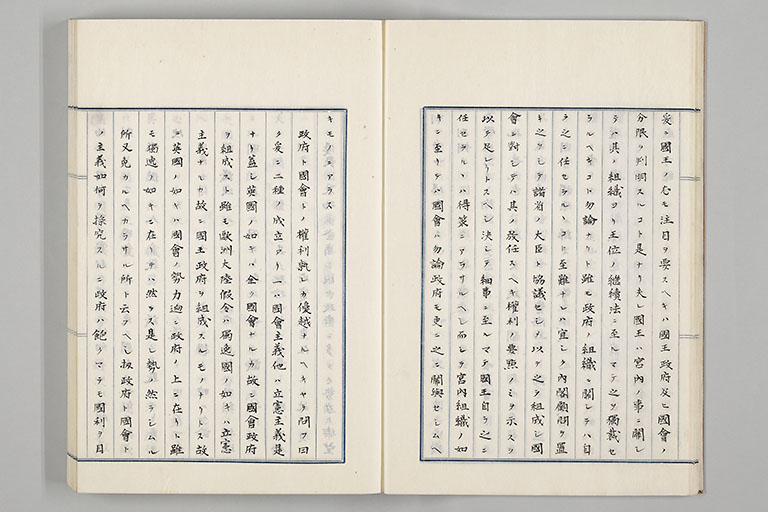 爰ニ國王ノ尤モ注目ヲ要スヘキハ國王政府及ヒ國會ノ
分限ヲ判明スルコト是ナリ夫レ國王ハ宮内ノ事ニ關シ
テハ其ノ組織ヨリ王位ノ繼續法ニ至ルマテ之ヲ獨裁セ
ラルヘキコト勿論ナリト雖モ政府ノ組織ニ關シテハ自
ラ之ニ任セラルヽヿ至難ナレハ宜シク内閣顧問ヲ置
キ之ヲシテ諸省ノ大臣ト協議セシメ以テ之ヲ組成シ國
會ニ對シテハ其ノ放任スヘキ權利ノ要點ノミヲ示スヲ
以テ足レリトスヘシ決シテ細事ニ至ルマテ國王自ラ之ニ
任セラルヽハ得策ニアラサルヘシ而シテ宮内組織ノ如
キニ至リテハ國會ハ勿論政府モ更ニ之ニ關與セシムヘ
キモノニアラス
政府ト國會トノ權利孰レカ優越ナルヘキヤヲ問フ曰
ク爰ニ二種ノ成立アリ一ハ國會主義他ハ立憲主義是
ナリ蓋シ英國ノ如キハ全ク國會ナルカ故ニ國會政府
ヲ組成スト雖モ歐洲大陸假令ハ獨逸國ノ如キハ立憲
主義ナルカ故ニ國王政府ヲ組成スルモノトリトス故
ニ英國ノ如キハ國會ノ勢力迥ニ政府ノ上ニ在リト雖
モ獨逸ノ如キニ在リテハ然ラス是レ勢ノ然ラシムル
所又免カルヘカラサル所ト云フヘシ扨政府ト國會ト
ノ主義如何ヲ採究スルニ政府ハ飽クマテモ國利ヲ目